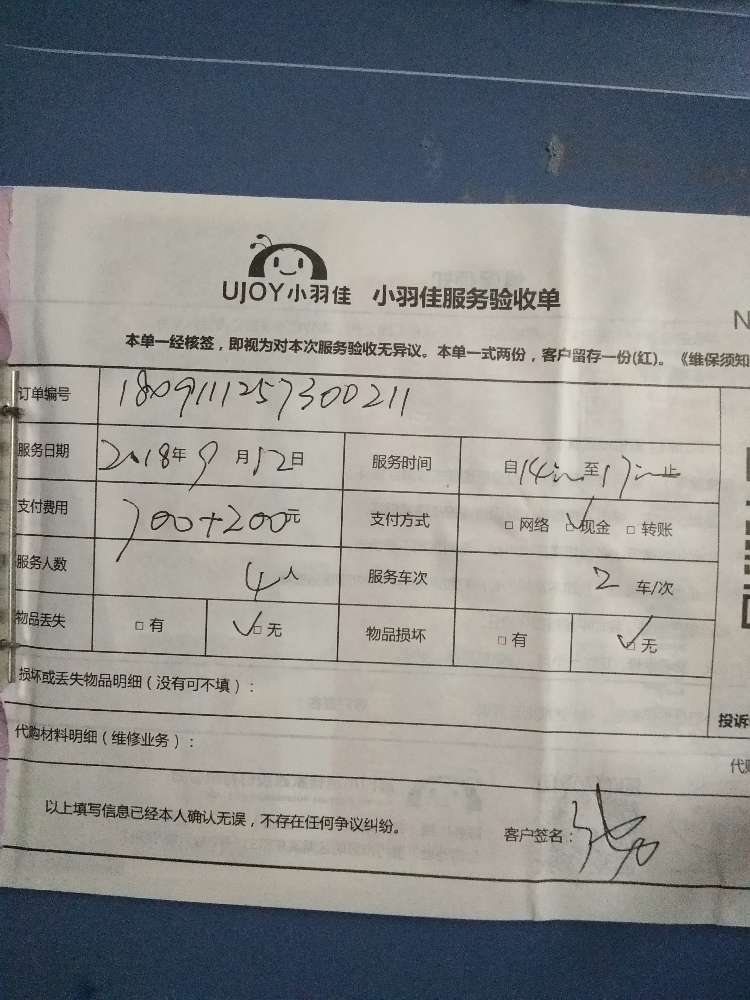 UJOY小羽佳 小羽佳服务验收单
N
本单一经核签，即视为对本次服务验收无异议。本单一式两份，客户留存一份(紅)。《维保须知
订单编号 1809111257300211
服务日期 2018年9月12日 服务时间 自14:00至17:00止
支付费用 700+200元 支付方式 □ 网络 □ 现金 □ 转账
服务人数 4人 服务车次 2 车/次
物品丢失 □ 有 □ 无 物品损坏 □ 有 □ 无
损坏或丢失物品明细（没有可不填）：
投诉
代购材料明细（维修业务）：
代购
以上填写信息已经本人确认无误，不存在任何争议纠纷。 客户签名：